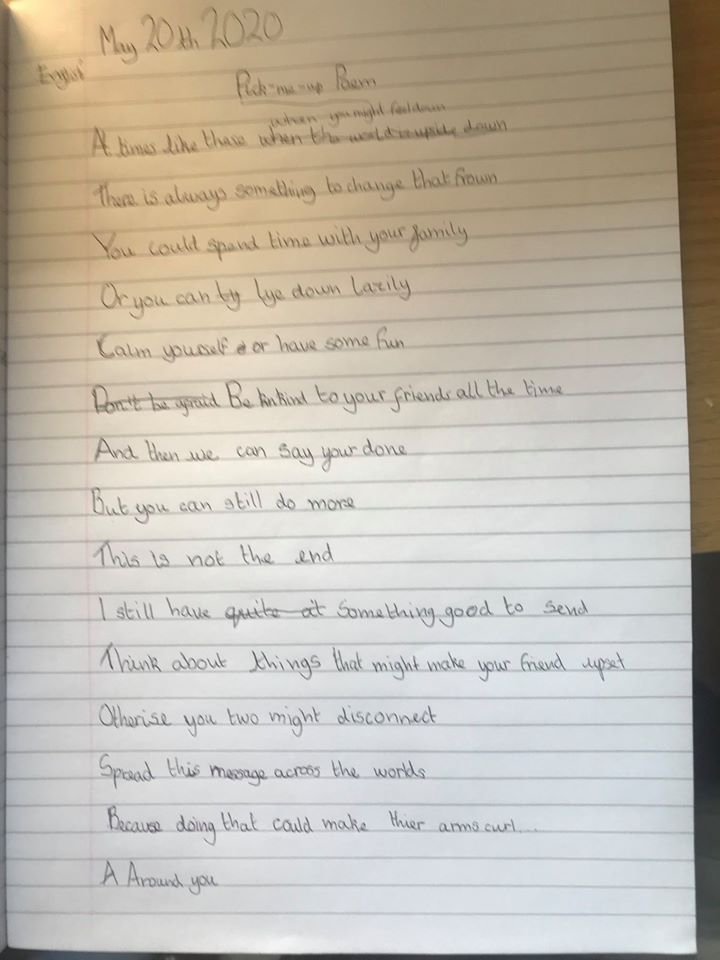 May 20th 2020
English
Pick-me-up Poem
when you might feel down
At times like these when the world is upside down
There is always something to change that frown
You could spend time with your family
Or you can ty lye down lazily
Calm yourself e or have some fun
Don't be afraid Be kinkind to your friends all the time
And then we can say your done
But you can still do more
This is not the end
I still have quite at something good to send
Think about things that might make your friend upset
Otherise you two might disconnect
Spread this message across the worlds
Because doing that could make thier arms curl...
A Around you